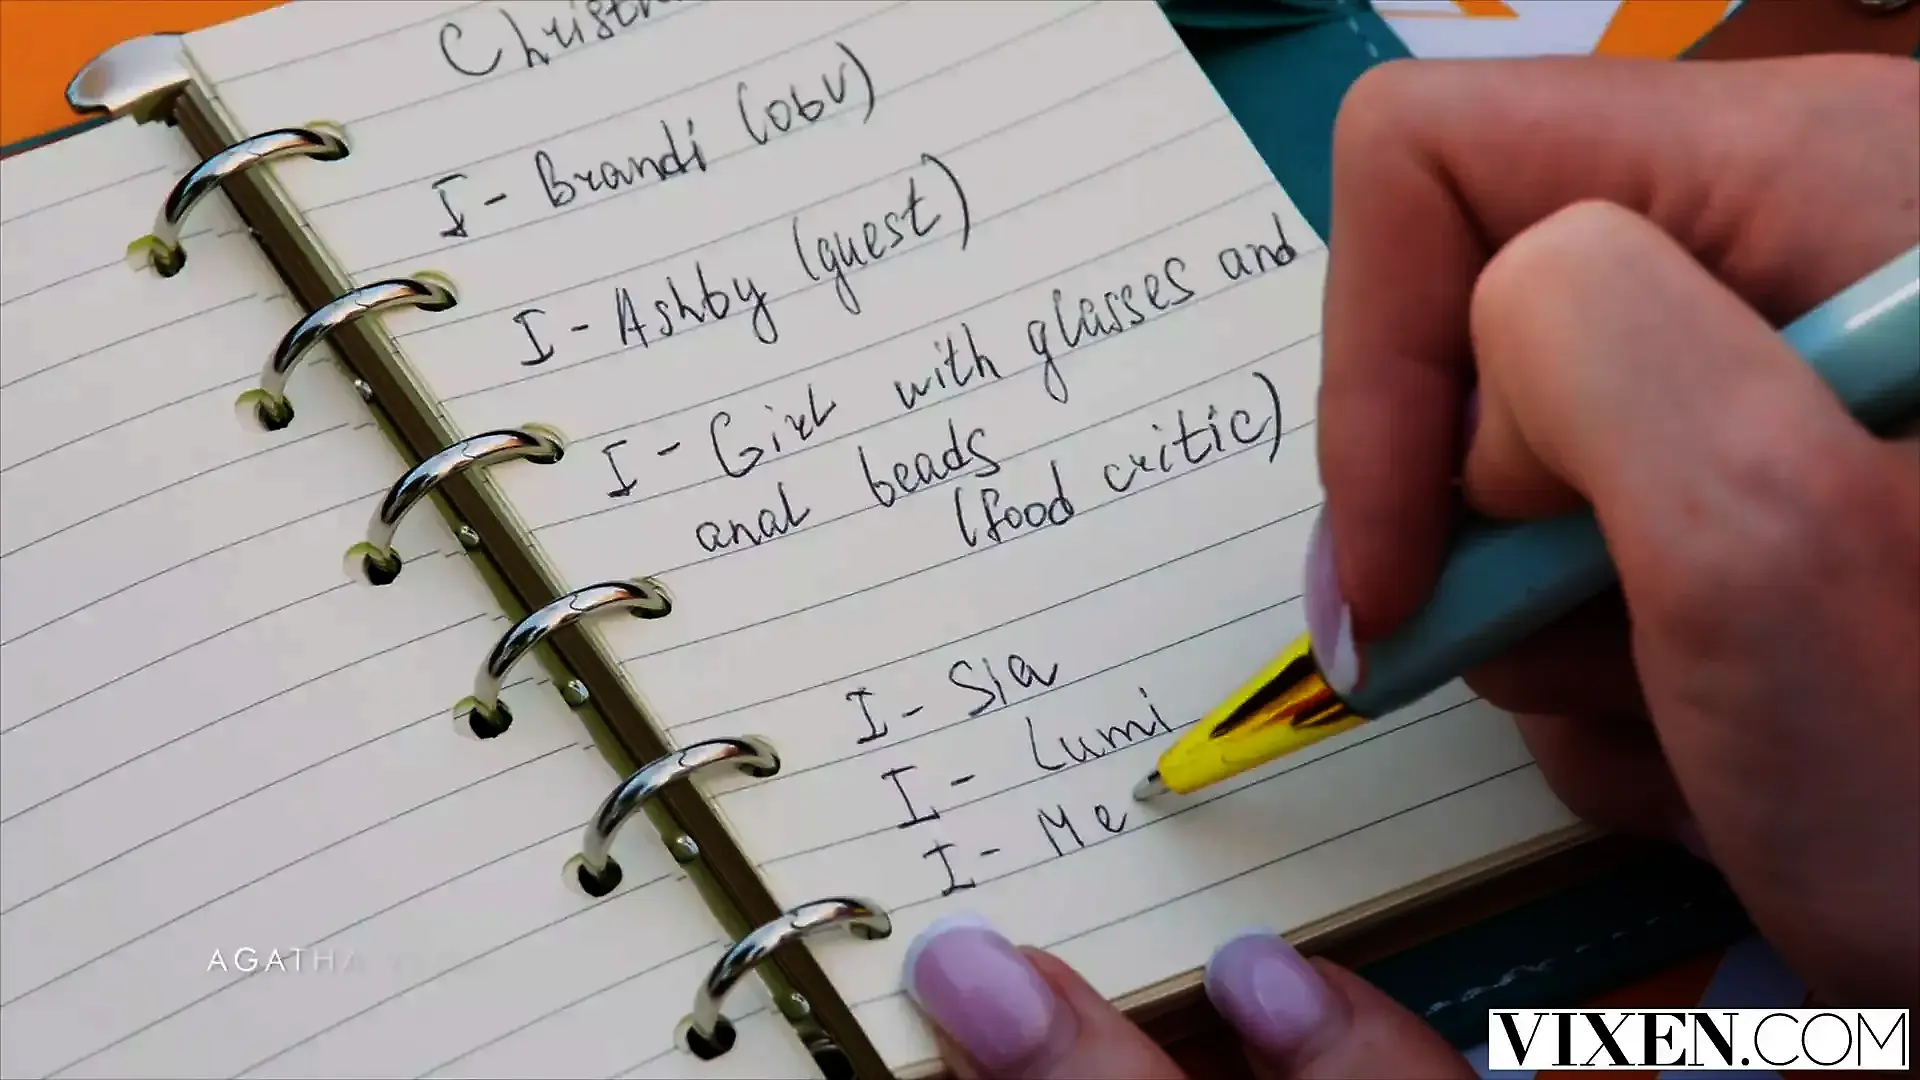 Christm
I - Brandi (obv)
I - Ashby (guest)
I - Girl with glasses and
anal beads
(food critic)
I - Sia
I - Lumi
I - Me
AGATHA
VIXEN.COM